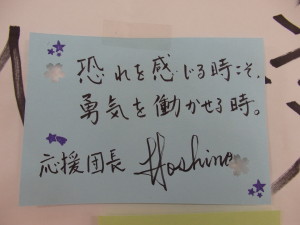 恐れを感じる時こそ、
勇気を働かせる時。
応援団長 Hoshino